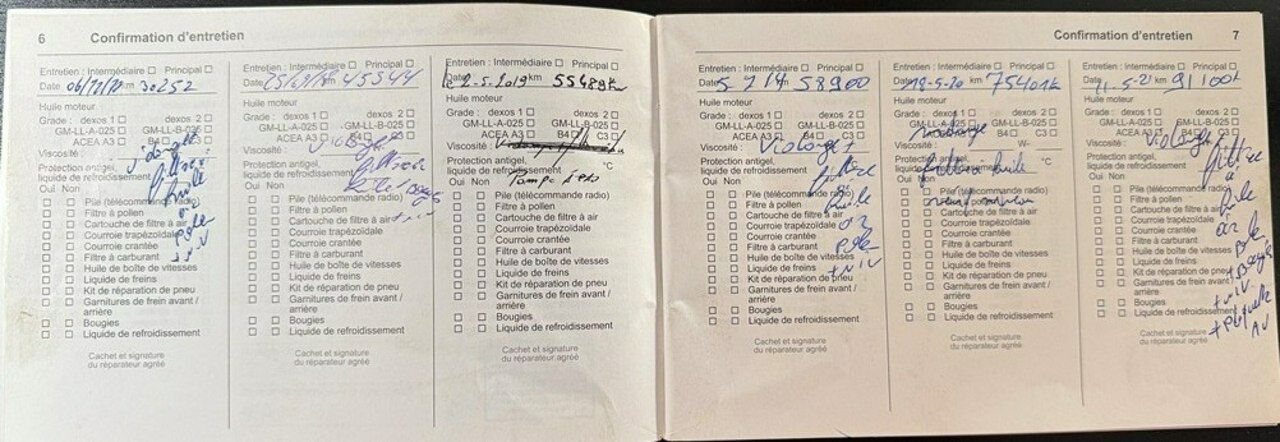 6 Confirmation d'entretien
Entretien : Intermédiaire Principal
Date km 30252
Huile moteur
Grade : dexos 1 dexos 2
GM-LL-A-025 GM-LL-B-025
ACEA A3 B4 C3
Viscosité :
Protection antigel,
liquide de refroidissement
Oui Non
Pile (télécommande radio)
Filtre à pollen
Cartouche de filtre à air
Courroie trapézoïdale
Courroie crantée
Filtre à carburant
Huile de boîte de vitesses
Liquide de freins
Kit de réparation de pneu
Garnitures de frein avant /
arrière
Bougies
Liquide de refroidissement
Cachet et signature
du réparateur agréé
Entretien : Intermédiaire Principal
Date km 45344
Huile moteur
Grade : dexos 1 dexos 2
GM-LL-A-025 GM-LL-B-025
ACEA A3 B4 C3
Viscosité :
Protection antigel,
liquide de refroidissement
Oui Non
Pile (télécommande radio)
Filtre à pollen
Cartouche de filtre à air
Courroie trapézoïdale
Courroie crantée
Filtre à carburant
Huile de boîte de vitesses
Liquide de freins
Kit de réparation de pneu
Garnitures de frein avant /
arrière
Bougies
Liquide de refroidissement
Cachet et signature
du réparateur agréé
Entretien : Intermédiaire Principal
Date 2-5-2019 km 55489
Huile moteur
Grade : dexos 1 dexos 2
GM-LL-A-025 GM-LL-B-025
ACEA A3 B4 C3
Viscosité :
Protection antigel,
liquide de refroidissement °C
Oui Non
Pile (télécommande radio)
Filtre à pollen
Cartouche de filtre à air
Courroie trapézoïdale
Courroie crantée
Filtre à carburant
Huile de boîte de vitesses
Liquide de freins
Kit de réparation de pneu
Garnitures de frein avant /
arrière
Bougies
Liquide de refroidissement
Cachet et signature
du réparateur agréé
Confirmation d'entretien 7
Entretien : Intermédiaire Principal
Date km 58900
Huile moteur
Grade : dexos 1 dexos 2
GM-LL-A-025 GM-LL-B-025
ACEA A3 B4 C3
Viscosité :
Protection antigel,
liquide de refroidissement
Oui Non
Pile (télécommande radio)
Filtre à pollen
Cartouche de filtre à air
Courroie trapézoïdale
Courroie crantée
Filtre à carburant
Huile de boîte de vitesses
Liquide de freins
Kit de réparation de pneu
Garnitures de frein avant /
arrière
Bougies
Liquide de refroidissement
Cachet et signature
du réparateur agréé
Entretien : Intermédiaire Principal
Date km 75401
Huile moteur
Grade : dexos 1 dexos 2
GM-LL-A-025 GM-LL-B-025
B4 C3
Viscosité : W-
Protection antigel,
liquide de refroidissement °C
Oui Non
Pile (télécommande radio)
Filtre à pollen
Cartouche de filtre à air
Courroie trapézoïdale
Courroie crantée
Filtre à carburant
Huile de boîte de vitesses
Liquide de freins
Kit de réparation de pneu
Garnitures de frein avant /
arrière
Bougies
Liquide de refroidissement
Cachet et signature
du réparateur agréé
Entretien : Intermédiaire Principal
Date 11-5-21 km 91100
Huile moteur
Grade : dexos 1 dexos 2
GM-LL-A-025 GM-LL-B-025
ACEA A3 B4 C3
Viscosité :
Protection antigel,
liquide de refroidissement
Oui Non
Pile (télécommande radio)
Filtre à pollen
Cartouche de filtre à air
Courroie trapézoïdale
Courroie crantée
Filtre à carburant
Huile de boîte de vitesses
Liquide de freins
Kit de réparation de pneu
Garnitures de frein avant /
arrière
Bougies
Liquide de refroidissement
Cachet et signature
du réparateur agréé